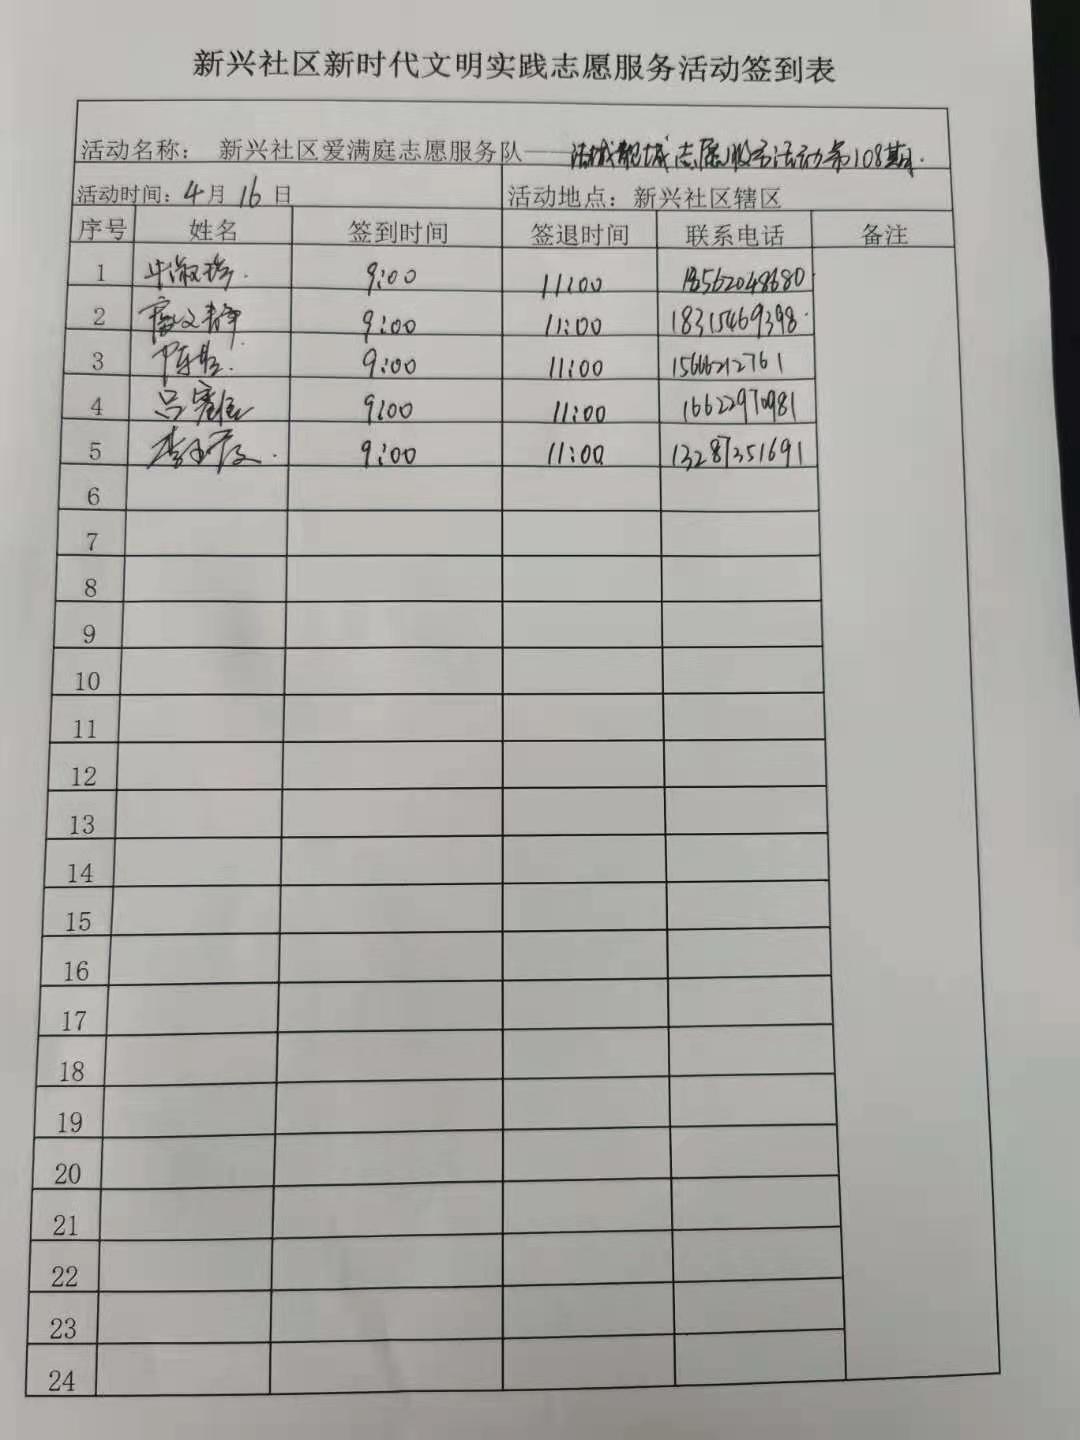 新兴社区新时代文明实践志愿服务活动签到表
活动名称： 新兴社区爱满庭志愿服务队——洁城靓城志愿服务活动第108期.
活动时间：4月16日 活动地点：新兴社区辖区
序号 姓名 签到时间 签退时间 联系电话 备注
1 9:00 11:00 18562048680
2 9:00 11:00 18315469398
3 9:00 11:00 15666212761
4 吕 9:00 11:00 16622970981
5 李 9:00 11:00 13287351691
6
7
8
9
10
11
12
13
14
15
16
17
18
19
20
21
22
23
24